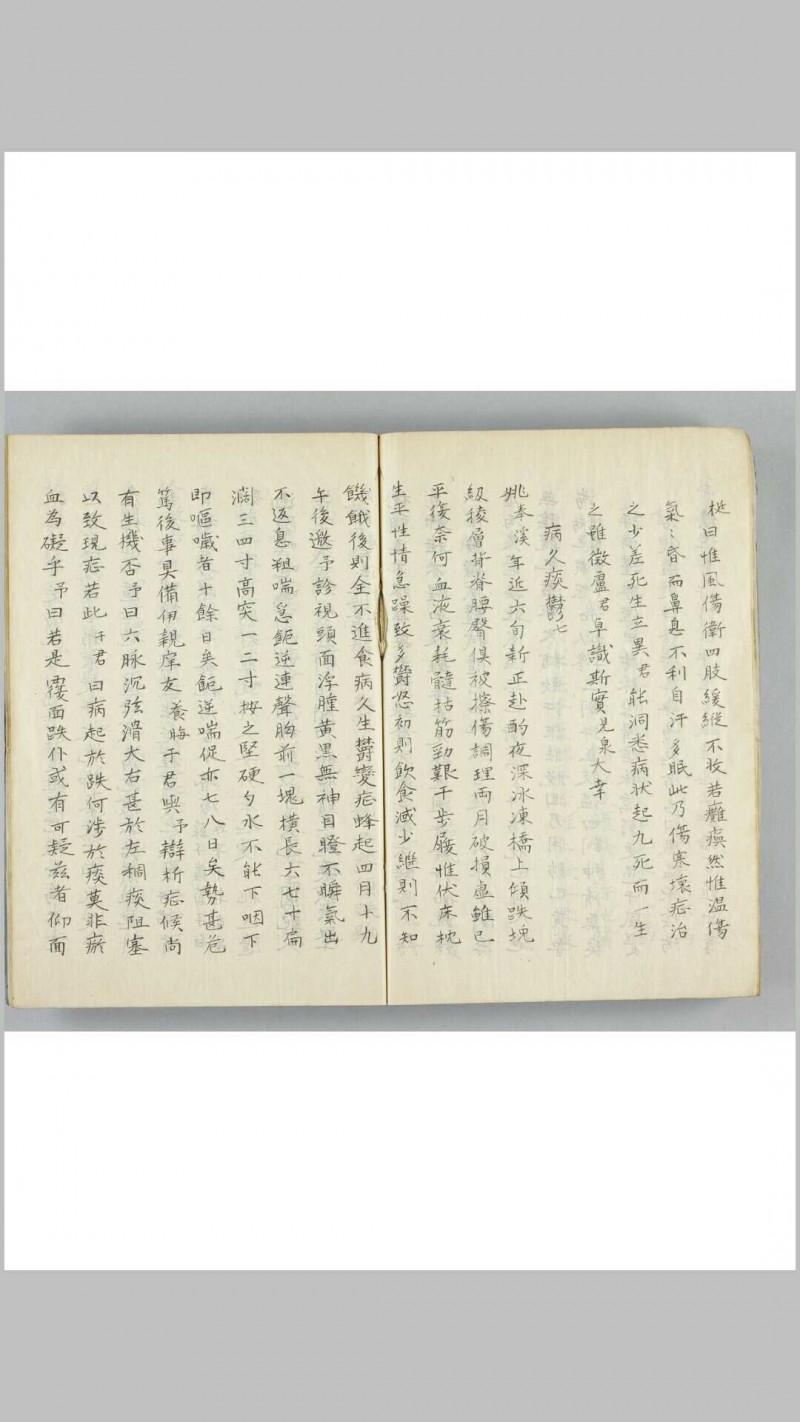 梃曰惟風傷衛四肢緩縱不收若癱瘓然惟温傷
氣氣昏而鼻息不利自汗多眠此乃傷寒壞症治
之少差死生立異君能洞悉病狀起九死而一生
之雖徵盧君卓識斯實見泉大幸
病久痰鬱七
姚奉溪年近六旬新正赴酌夜深冰凍橋上傾跌塊
級稜層背脊腰臀俱被擦傷調理兩月破損處雖已
平復奈何血液衰耗髓枯筋勁艱于步履惟伏床枕
生平性情急躁致多鬱怒初則飲食減少繼則不知
饑餓後則全不進食病久生鬱變症蜂起四月十九
午後邀予診視頭面浮腫黃黑無神目瞪不瞬氣出
不返息粗喘急呃逆連聲胸前一塊橫長六七寸扁
濶三四寸高突一二寸按之堅硬勺水不能下咽下
即嘔噦者十餘日矣呃逆喘促亦七八日矣勢甚危
篤後事具備伊親庠友養晦于君與予辯析症候尚
有生機否予曰六脉沉弦滑大右甚於左稠痰阻塞
以致現症若此于君曰病起於跌何涉於痰莫非瘀
血為礙乎予曰若是覆面跌仆或有可疑茲者仰面